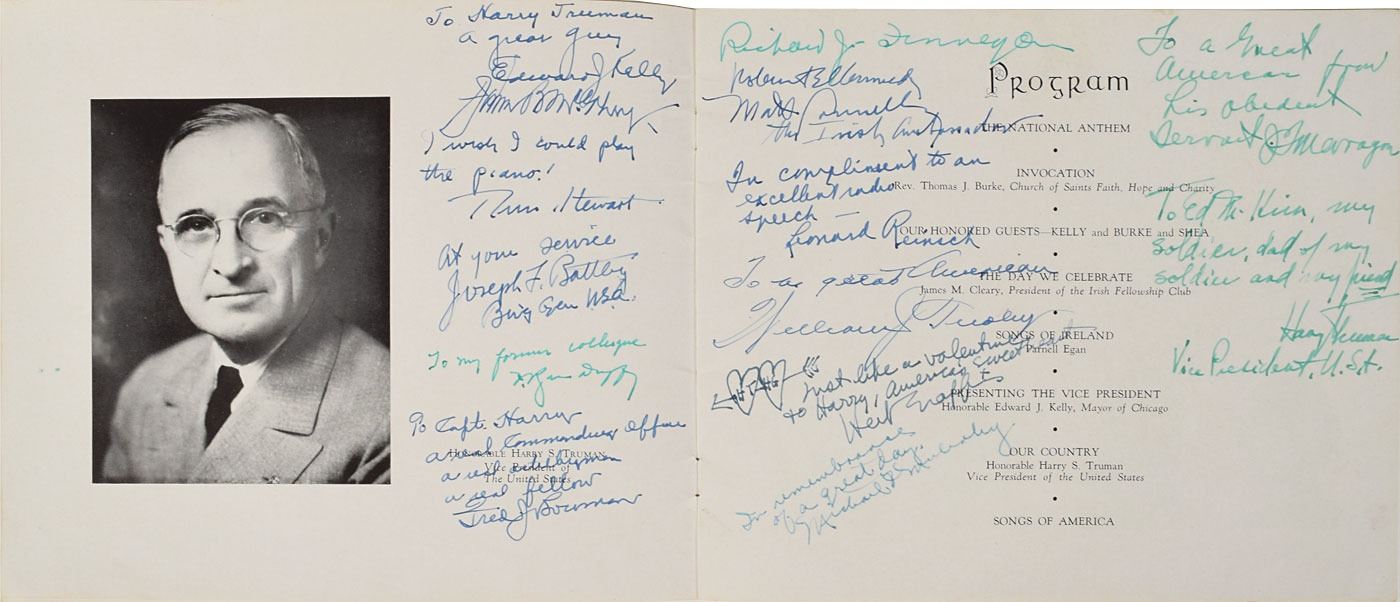 To Harry Truman
a great guy
Edward J Kelly
I wish I could play
the piano!
Stewart
At your service
Joseph F. Battley
Brig Gen U.S.A.
To my former colleague
Ryan Duffy
To Capt. Harry
a real Commanding Officer
a real artilleryman
a real fellow
Fred J Bowman
Honorable Harry S. Truman
Vice President of
The United States
Richard J. Finnegan
Matt
the Irish Ambassador
In compliment to an
excellent radio
speech —
Leonard Reinsch
To a great American
William J
Just like a valentine
to Harry, America's Sweetheart
In remembrance
of a great day.
Michael
Program
THE NATIONAL ANTHEM
INVOCATION
Rev. Thomas J. Burke, Church of Saints Faith, Hope and Charity
OUR HONORED GUESTS—KELLY and BURKE and SHEA
THE DAY WE CELEBRATE
James M. Cleary, President of the Irish Fellowship Club
SONGS OF IRELAND
Parnell Egan
PRESENTING THE VICE PRESIDENT
Honorable Edward J. Kelly, Mayor of Chicago
OUR COUNTRY
Honorable Harry S. Truman
Vice President of the United States
SONGS OF AMERICA
To a Great
American from
his obedient
Servant J Maragon
To Ed McKim, my
soldier, dad of my
soldier and my friend
Harry Truman
Vice President, U.S.A.